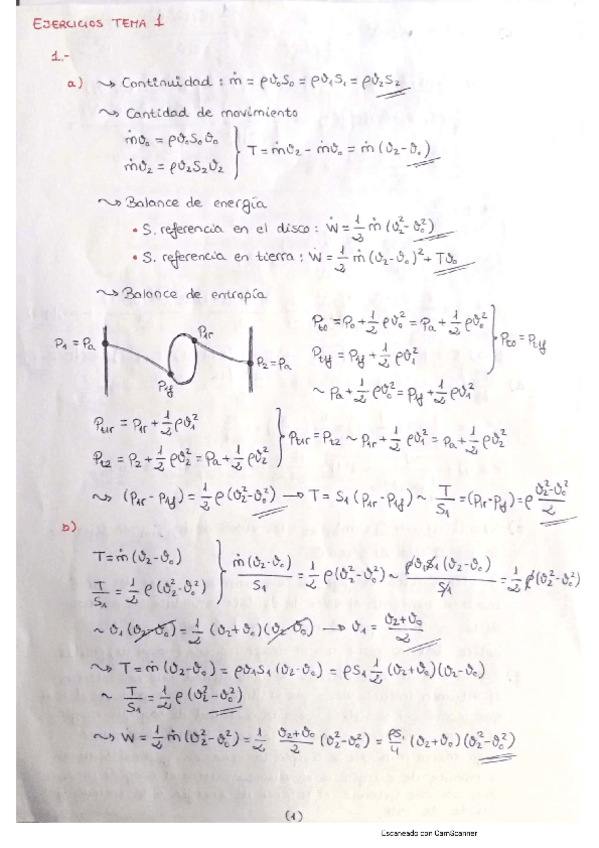 EJERCICIOS TEMA 1
1.-
a) ⇝ Continuidad : ṁ = ρϑ₀S₀ = ρϑ₁S₁ = ρϑ₂S₂
⇝ Cantidad de movimiento
ṁϑ₀ = ρϑ₀S₀ϑ₀
ṁϑ₂ = ρϑ₂S₂ϑ₂
T = ṁϑ₂ - ṁϑ₀ = ṁ(ϑ₂-ϑ₀)
⇝ Balance de energía
• S. referencia en el disco : Ẇ = 1/2 ṁ(ϑ₂²-ϑ₀²)
• S. referencia en tierra : Ẇ = 1/2 ṁ(ϑ₂-ϑ₀)² + Tϑ₀
⇝ Balance de entropía
P₁ = Pa
P1r
P1y
P₂ = Pa
Pt0 = P₀ + 1/2 ρϑ₀² = Pa + 1/2 ρϑ₀²
Pty = P1y + 1/2 ρϑ₁²
Pt0 = Pty
~ Pa + 1/2 ρϑ₀² = P1y + 1/2 ρϑ₁²
Pt1r = P1r + 1/2 ρϑ₁²
Pt2 = P₂ + 1/2 ρϑ₂² = Pa + 1/2 ρϑ₂²
Pt1r = Pt2 ~ P1r + 1/2 ρϑ₁² = Pa + 1/2 ρϑ₂²
⇝ (P1r - P1y) = 1/2 ρ(ϑ₂²-ϑ₀²) → T = S₁(P1r - P1y) ~ T/S₁ = (P1r - P1y) = ρ (ϑ₂²-ϑ₀²)/2
b)
T = ṁ(ϑ₂-ϑ₀)
T/S₁ = 1/2 ρ(ϑ₂²-ϑ₀²)
ṁ(ϑ₂-ϑ₀)/S₁ = 1/2 ρ(ϑ₂²-ϑ₀²) ~ ρϑ₁S₁(ϑ₂-ϑ₀)/S₁ = 1/2 ρ(ϑ₂²-ϑ₀²)
~ ϑ₁(ϑ₂-ϑ₀) = 1/2 (ϑ₂+ϑ₀)(ϑ₂-ϑ₀) → ϑ₁ = (ϑ₂+ϑ₀)/2
⇝ T = ṁ(ϑ₂-ϑ₀) = ρϑ₁S₁(ϑ₂-ϑ₀) = ρS₁ 1/2 (ϑ₂+ϑ₀)(ϑ₂-ϑ₀)
~ T/S₁ = 1/2 ρ(ϑ₂²-ϑ₀²)
⇝ Ẇ = 1/2 ṁ(ϑ₂²-ϑ₀²) = 1/2 (ϑ₂+ϑ₀)/2 (ϑ₂²-ϑ₀²) = ρS₁/4 (ϑ₂+ϑ₀)(ϑ₂²-ϑ₀²)
(1)
Escaneado con CamScanner